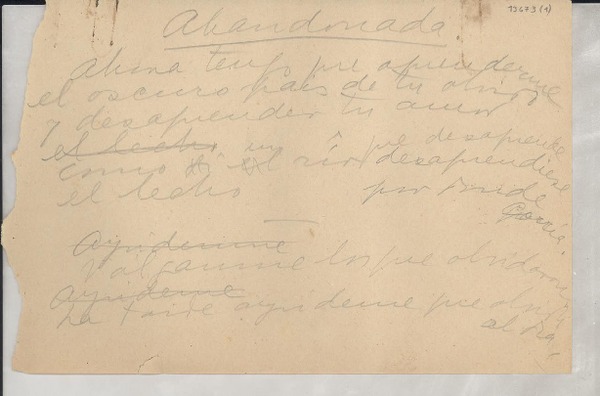 13673 (1)
Abandonada
Ahora tengo que aprenderme
el oscuro país de tu olvido
y desaprender tu amor
el lecho un que desaprende
como si el río desaprendiese
el lecho por donde
corría.
Ayúdenme
Válganme los que olvidaron
Ayúdeme
La tarde ayúdeme que olvida
al día